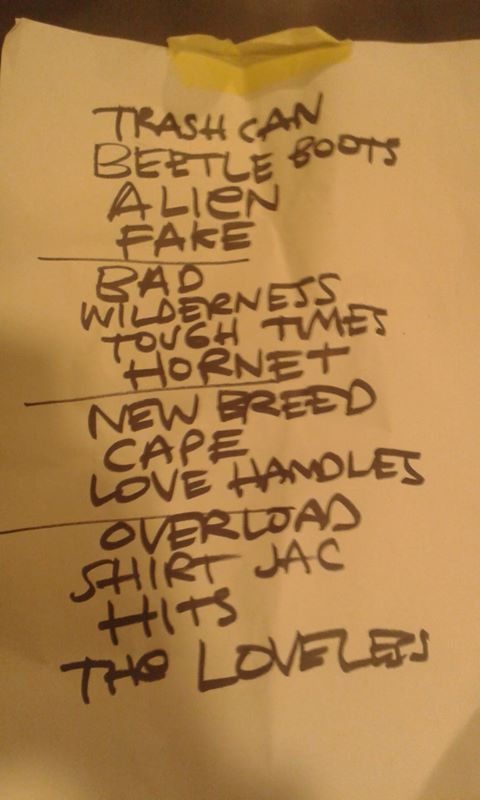 TRASH CAN
BEETLE BOOTS
ALIEN
FAKE
BAD
WILDERNESS
TOUGH TIMES
HORNET
NEW BREED
CAPE
LOVE HANDLES
OVERLOAD
SHIRT JAC
HITS
THE LOVELESS